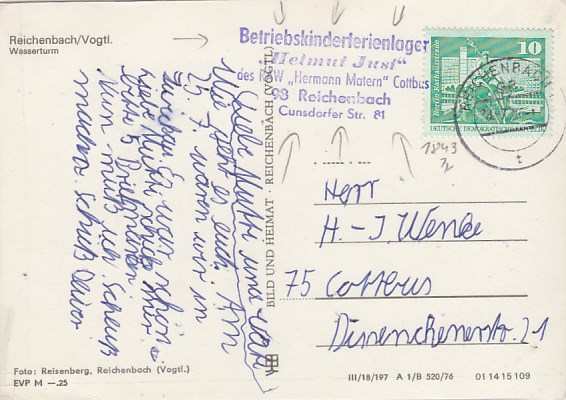 Reichenbach/Vogtl.
Wasserturm
Betriebskinderferienlager
"Helmut Just"
des RAW "Hermann Matern" Cottbus
98 Reichenbach
Cunsdorfer Str. 81
10
Berlin-Rathausstraße
DEUTSCHE DEMOKRATISCHE REPUBLIK
REICHENBACH
1843
Liebe Mutti und
Wie geht es euch. Am
25. 7. waren wir in
Zwickau. Es war schön.
Liebe Mutti schick mir
bitte 5 Briefmarken.
Nun muß ich
machen schluß
BILD UND HEIMAT · REICHENBACH (VOGTL.)
Herr
H.-J. Wende
75 Cottbus
Dissenchenerstr. 21
Foto: Reisenberg, Reichenbach (Vogtl.)
EVP M —.25
III/18/197 A 1/B 520/76 01 14 15 109